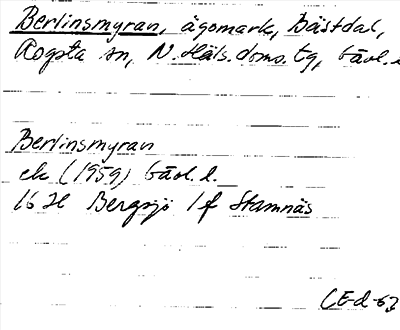 Berlinsmyran, ägomark, Bästdal,
Rogsta sn, N. Häls. doms. tg, Gävl. l.
Berlinsmyran
ek (1959) Gävl. l.
16 H Bergsjö 1 f Stamnäs
CEd-63